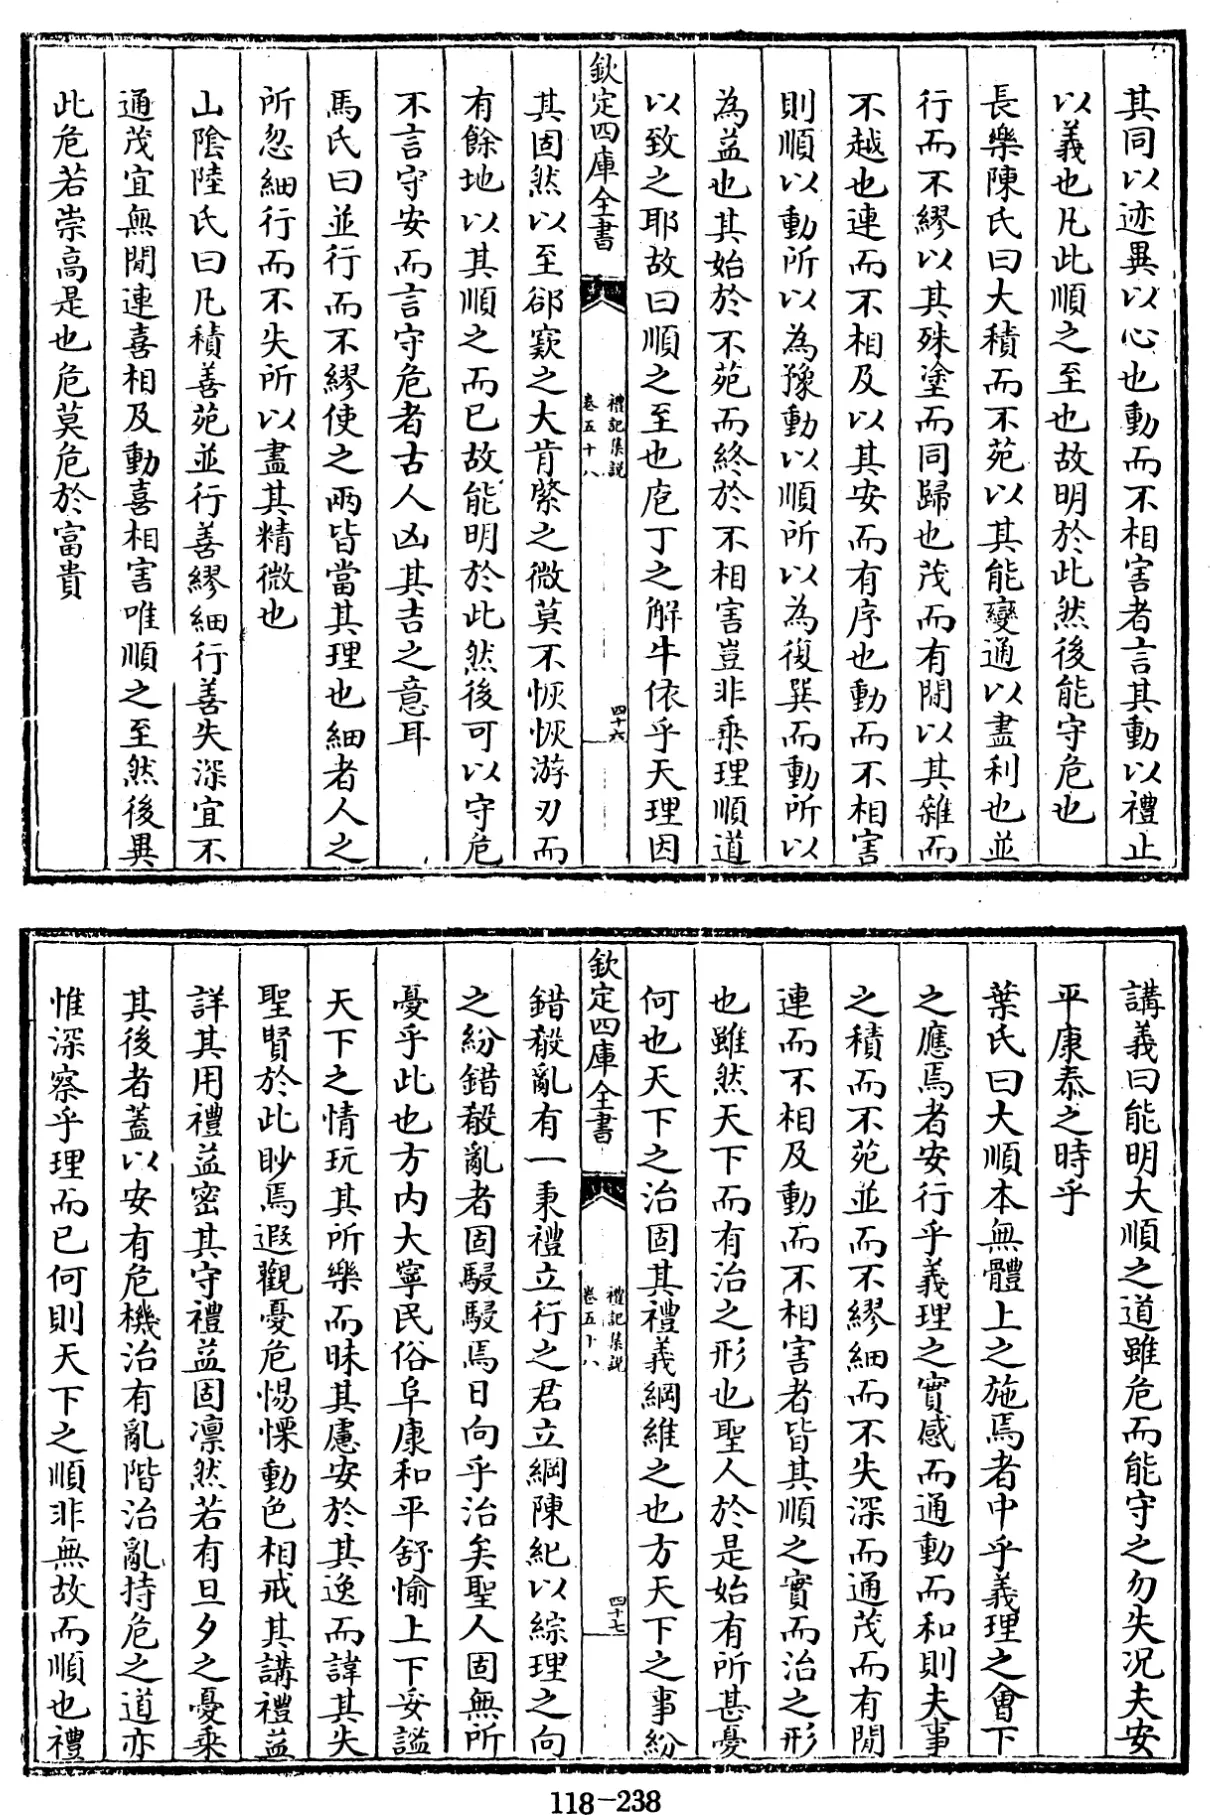 其同以迹異以心也動而不相害者言其動以禮止
以義也凡此順之至也故明於此然後能守危也
長樂陳氏曰大積而不苑以其能變通以盡利也並
行而不繆以其殊塗而同歸也茂而有閒以其雜而
不越也連而不相及以其安而有序也動而不相害
則順以動所以為豫動以順所以為復巽而動所以
為益也其始於不苑而終於不相害豈非乗理順道
以致之耶故曰順之至也庖丁之解牛依乎天理因
欽定四庫全書
禮記集説
卷五十八
四十六
其固然以至郤窾之大肯綮之微莫不恢恢游刃而
有餘地以其順之而已故能明於此然後可以守危
不言守安而言守危者古人凶其吉之意耳
馬氏曰並行而不繆使之兩皆當其理也細者人之
所忽細行而不失所以盡其精微也
山隂陸氏曰凡積善苑並行善繆細行善失深宜不
通茂宜無閒連喜相及動喜相害唯順之至然後異
此危若崇高是也危莫危於富貴
講義曰能明大順之道雖危而能守之勿失况夫安
平康泰之時乎
葉氏曰大順本無體上之施焉者中乎義理之會下
之應焉者安行乎義理之實感而通動而和則夫事
之積而不苑並而不繆細而不失深而通茂而有閒
連而不相及動而不相害者皆其順之實而治之形
也雖然天下而有治之形也聖人於是始有所甚憂
何也天下之治固其禮義綱維之也方天下之事紛
欽定四庫全書
禮記集説
卷五十八
四十七
錯殽亂有一秉禮立行之君立綱陳紀以綜理之向
之紛錯殽亂者固駸駸焉日向乎治矣聖人固無所
憂乎此也方内大寧民俗阜康和平舒愉上下妥謐
天下之情玩其所樂而昧其慮安於其逸而諱其失
聖賢於此眇焉遐觀憂危惕慄動色相戒其講禮益
詳其用禮益密其守禮益固凛然若有旦夕之憂乗
其後者蓋以安有危機治有亂階治亂持危之道亦
惟深察乎理而已何則天下之順非無故而順也禮
118-238